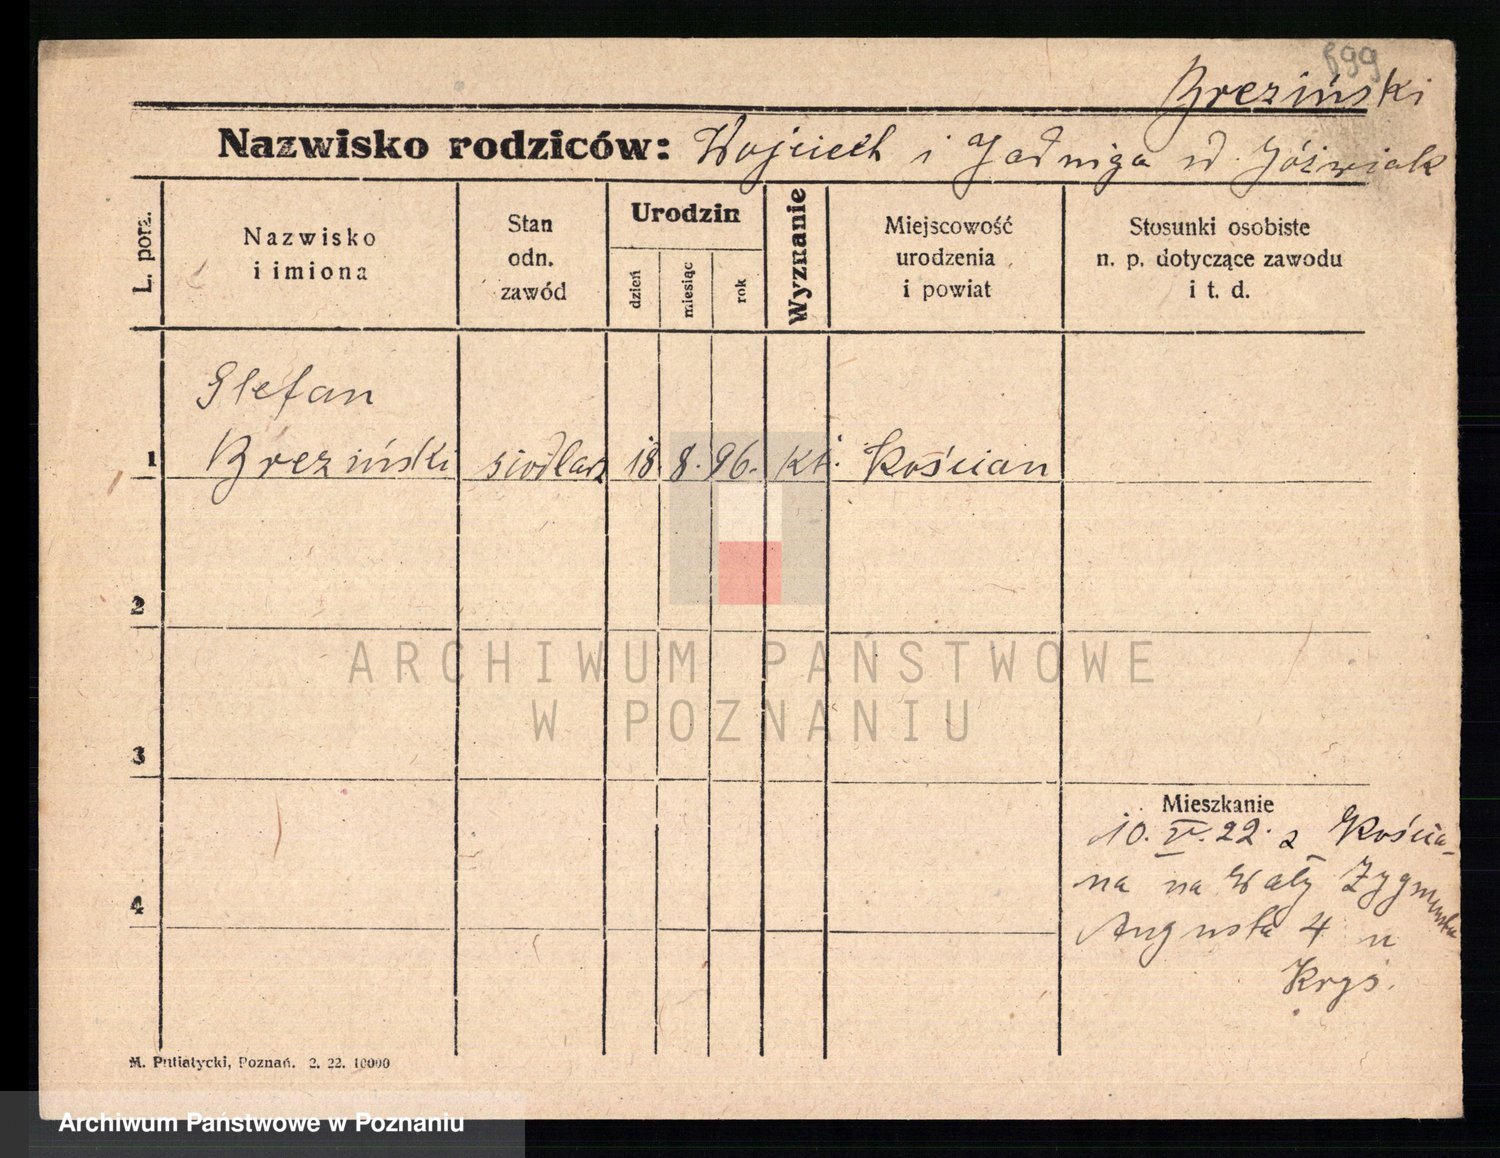 899
Brezinski
Nazwisko rodziców: Wojciech i Jadwiga d. Jóźwiak
L. porz.
Nazwisko
i imiona
Stan
odn.
zawód
Urodzin
dzień
miesiąc
rok
Wyznanie
Miejscowość
urodzenia
i powiat
Stosunki osobiste
n. p. dotyczące zawodu
i t. d.
Stefan
1 Breziński siodlarz 18. 8. 96. kt. Kościan
2
ARCHIWUM PAŃSTWOWE
W POZNANIU
3
Mieszkanie
10. V. 22. z Kościa-
na na Wały Zygmunta
4
Augusta 4 u
Krys.
M. Putiatycki, Poznań. 2. 22. 10000
Archiwum Państwowe w Poznaniu